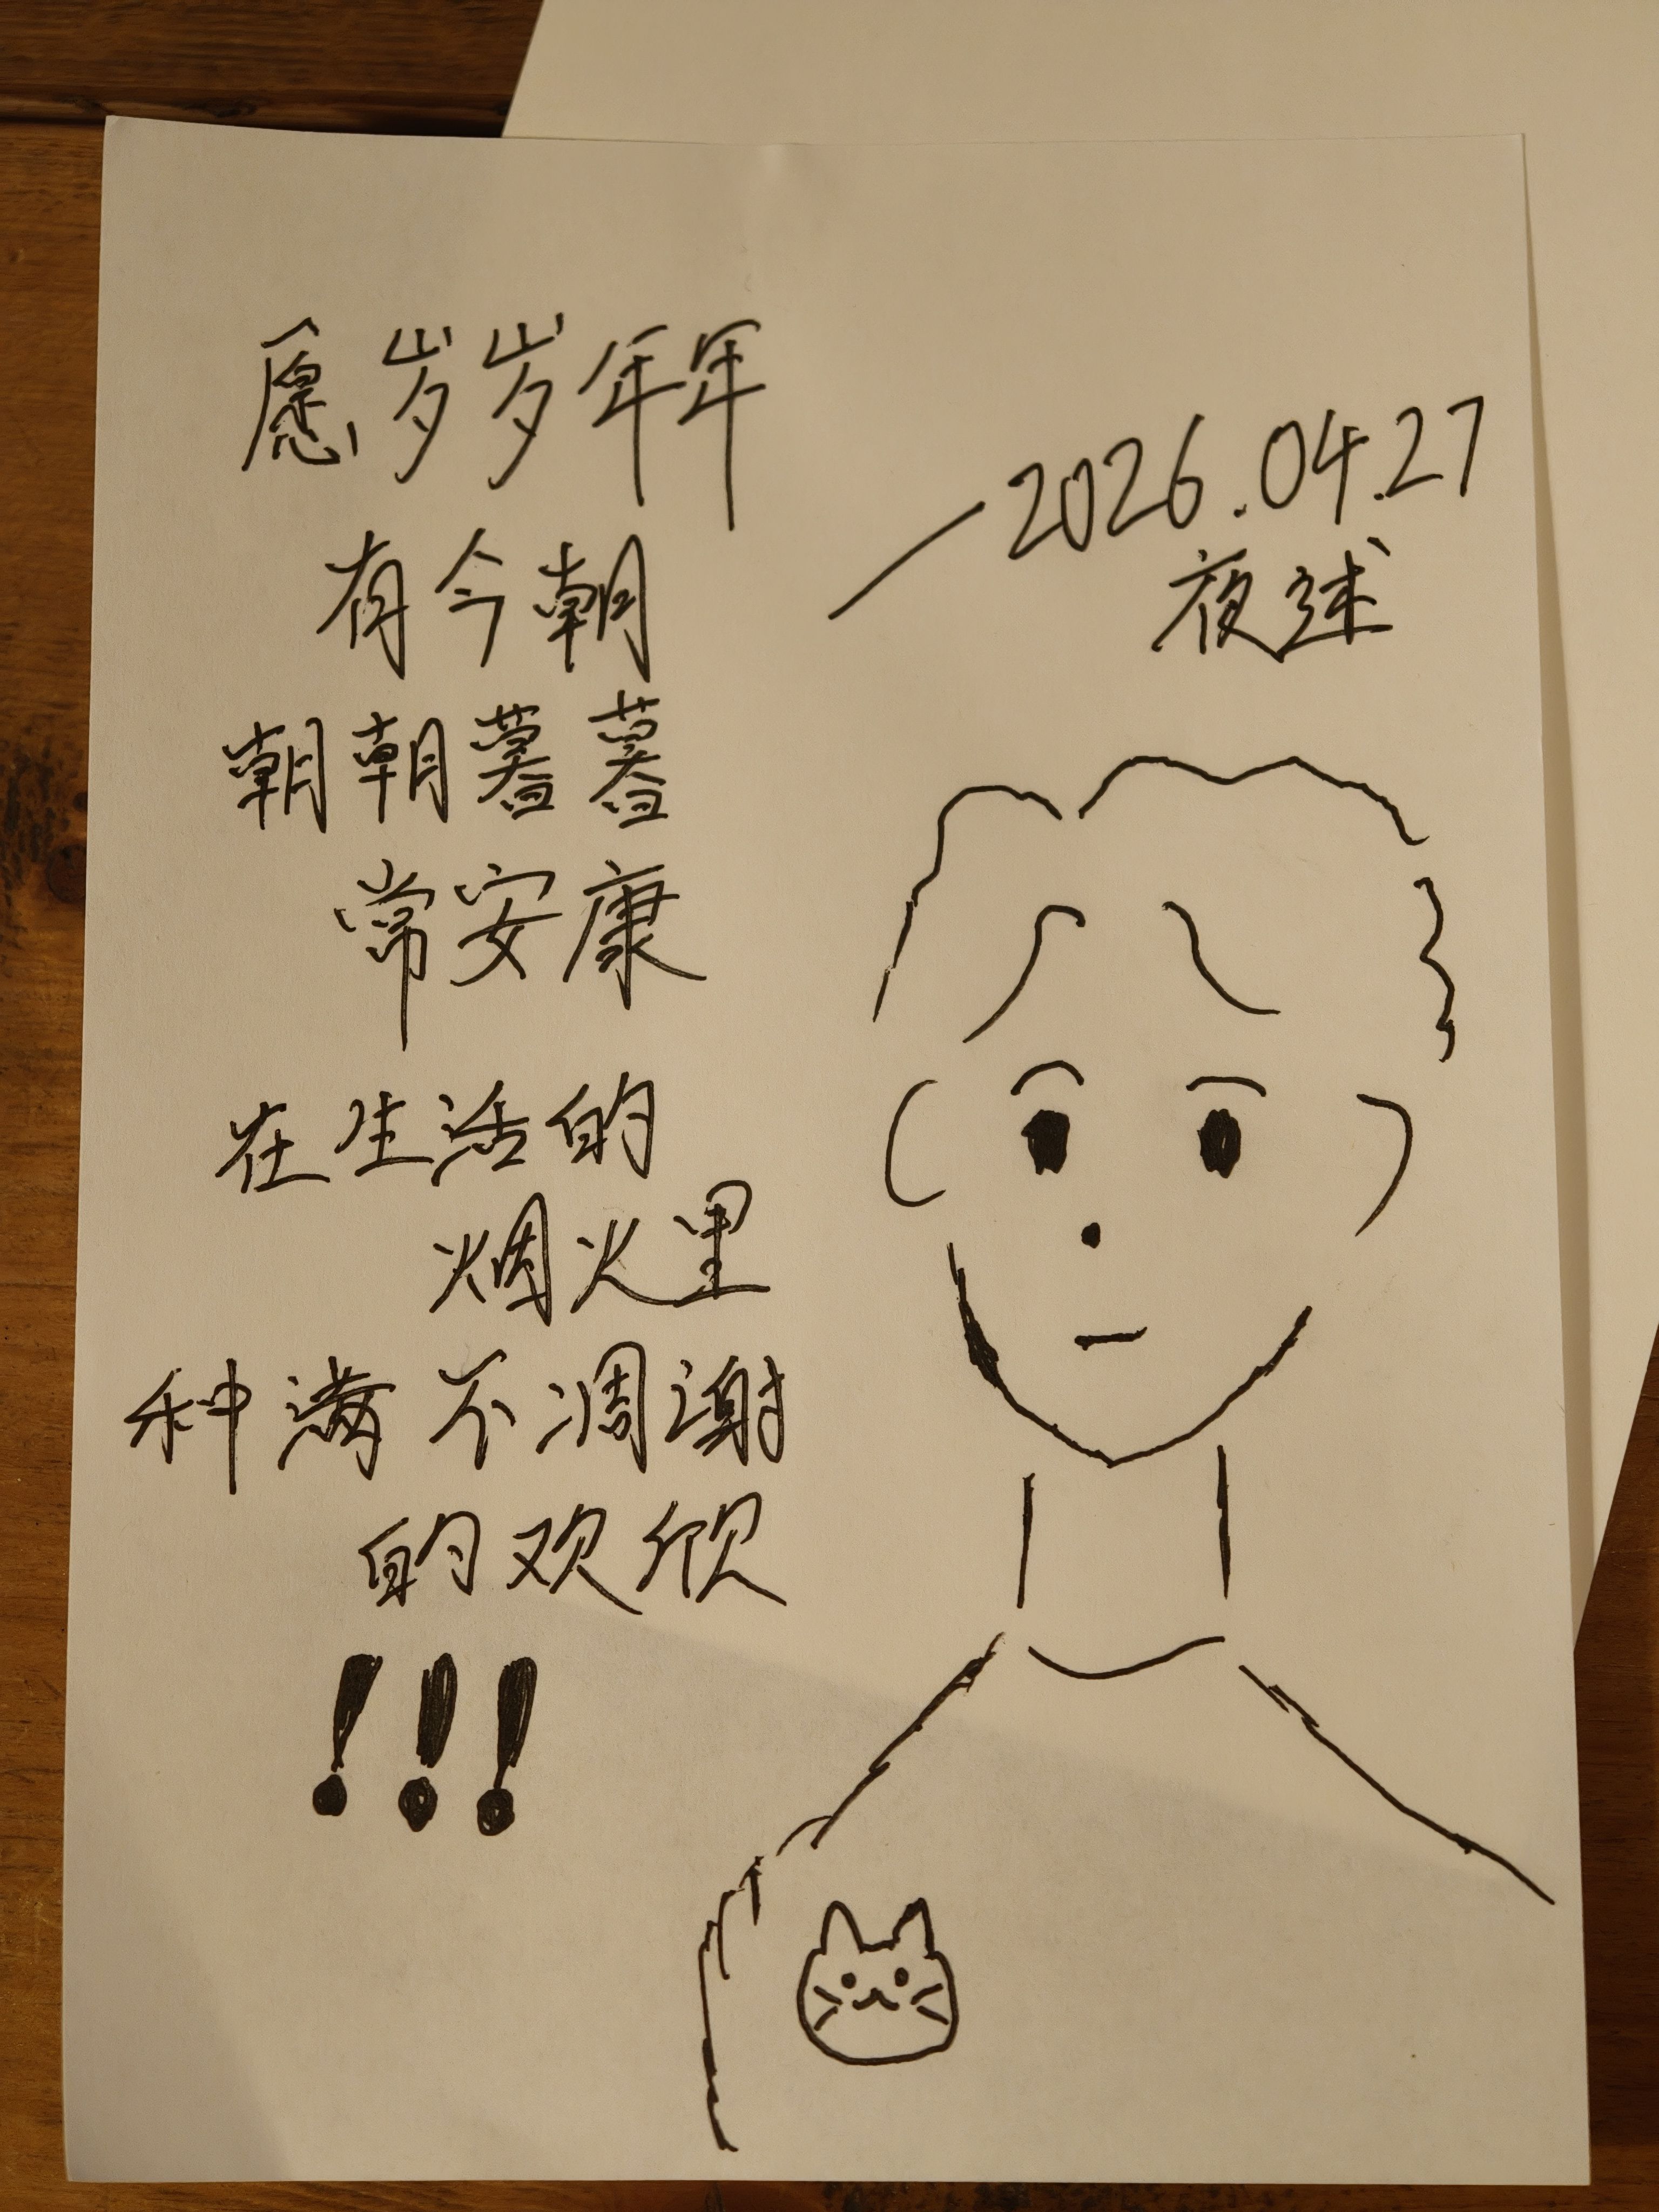 愿岁岁年年
有今朝
朝朝暮暮
常安康
在生活的
烟火里
种满不凋谢
的欢欣
!!!
—2026.04.27
夜述